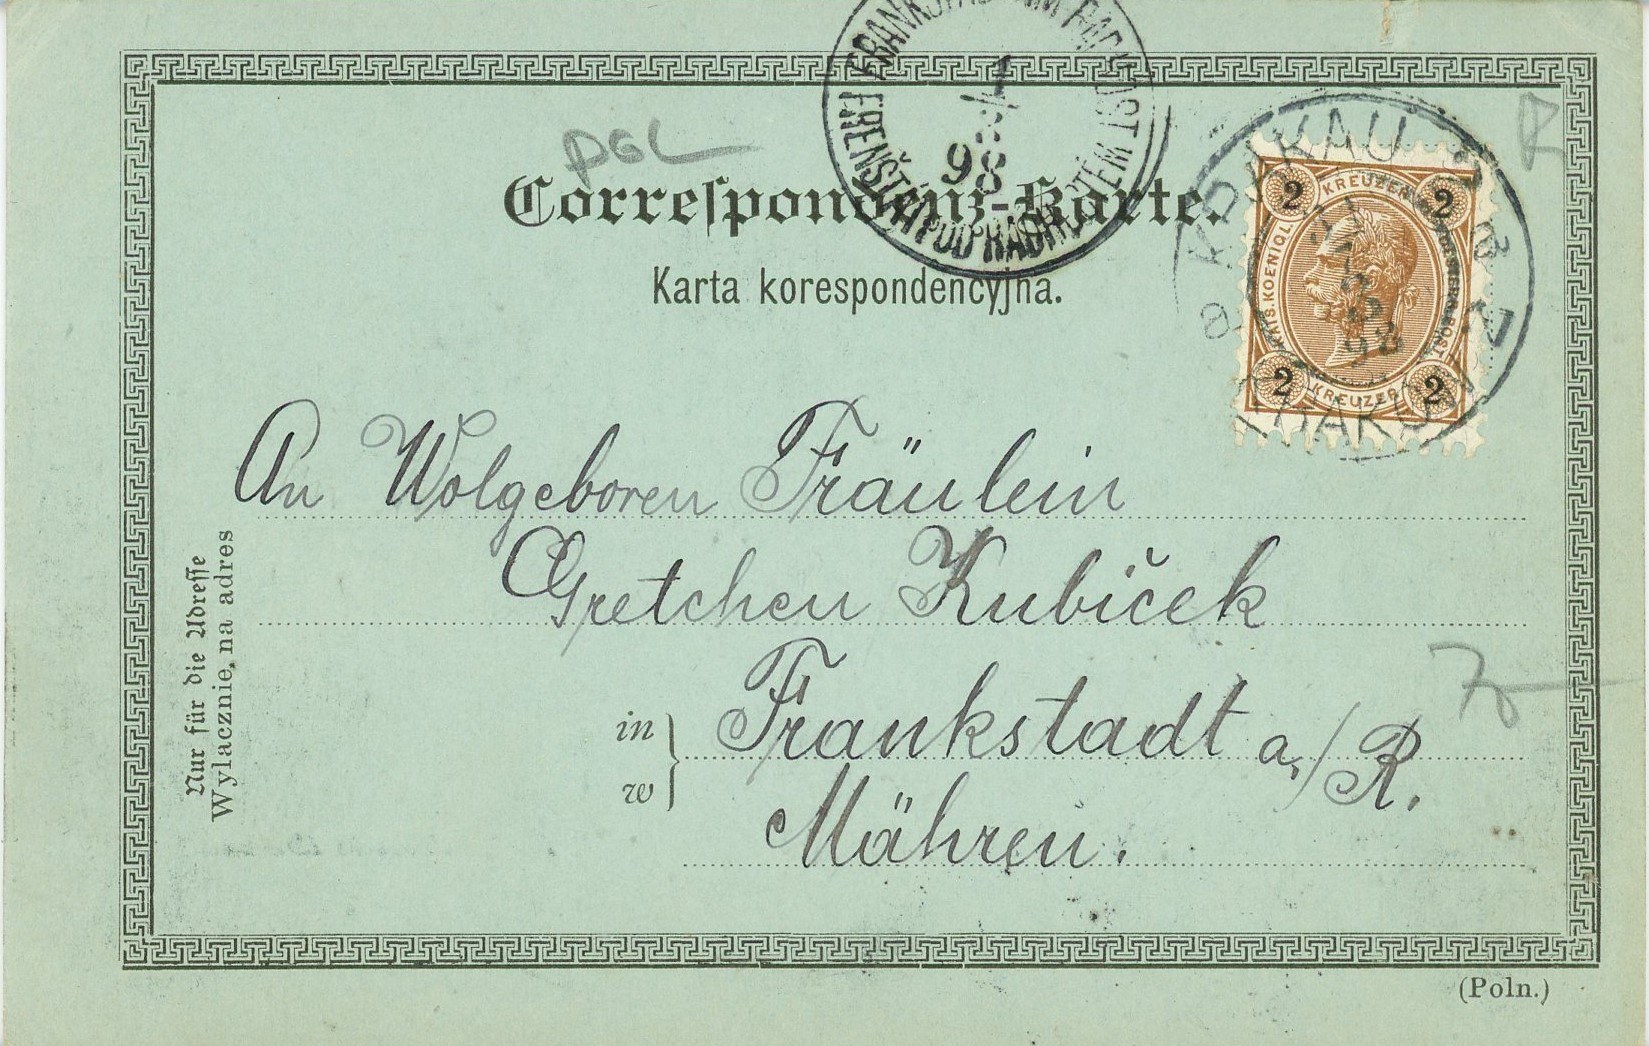 pGL
FRANKSTADT AM RADHOST
FRENŠTÁT POD RADHOŠTĚM
1
98
Correſpondenz-Karte.
Karta korespondencyjna.
KRAKAU
KRAKÓW
98
2 KREUZER 2
KAIS. KOENIGL.
OESTERR. POST
2 KREUZER 2
An Wolgeboren Fräulein
Gretchen Kubiček
in
w
Frankstadt a./R.
Mähren.
Nur für die Adreſſe
Wylacznie, na adres
(Poln.)